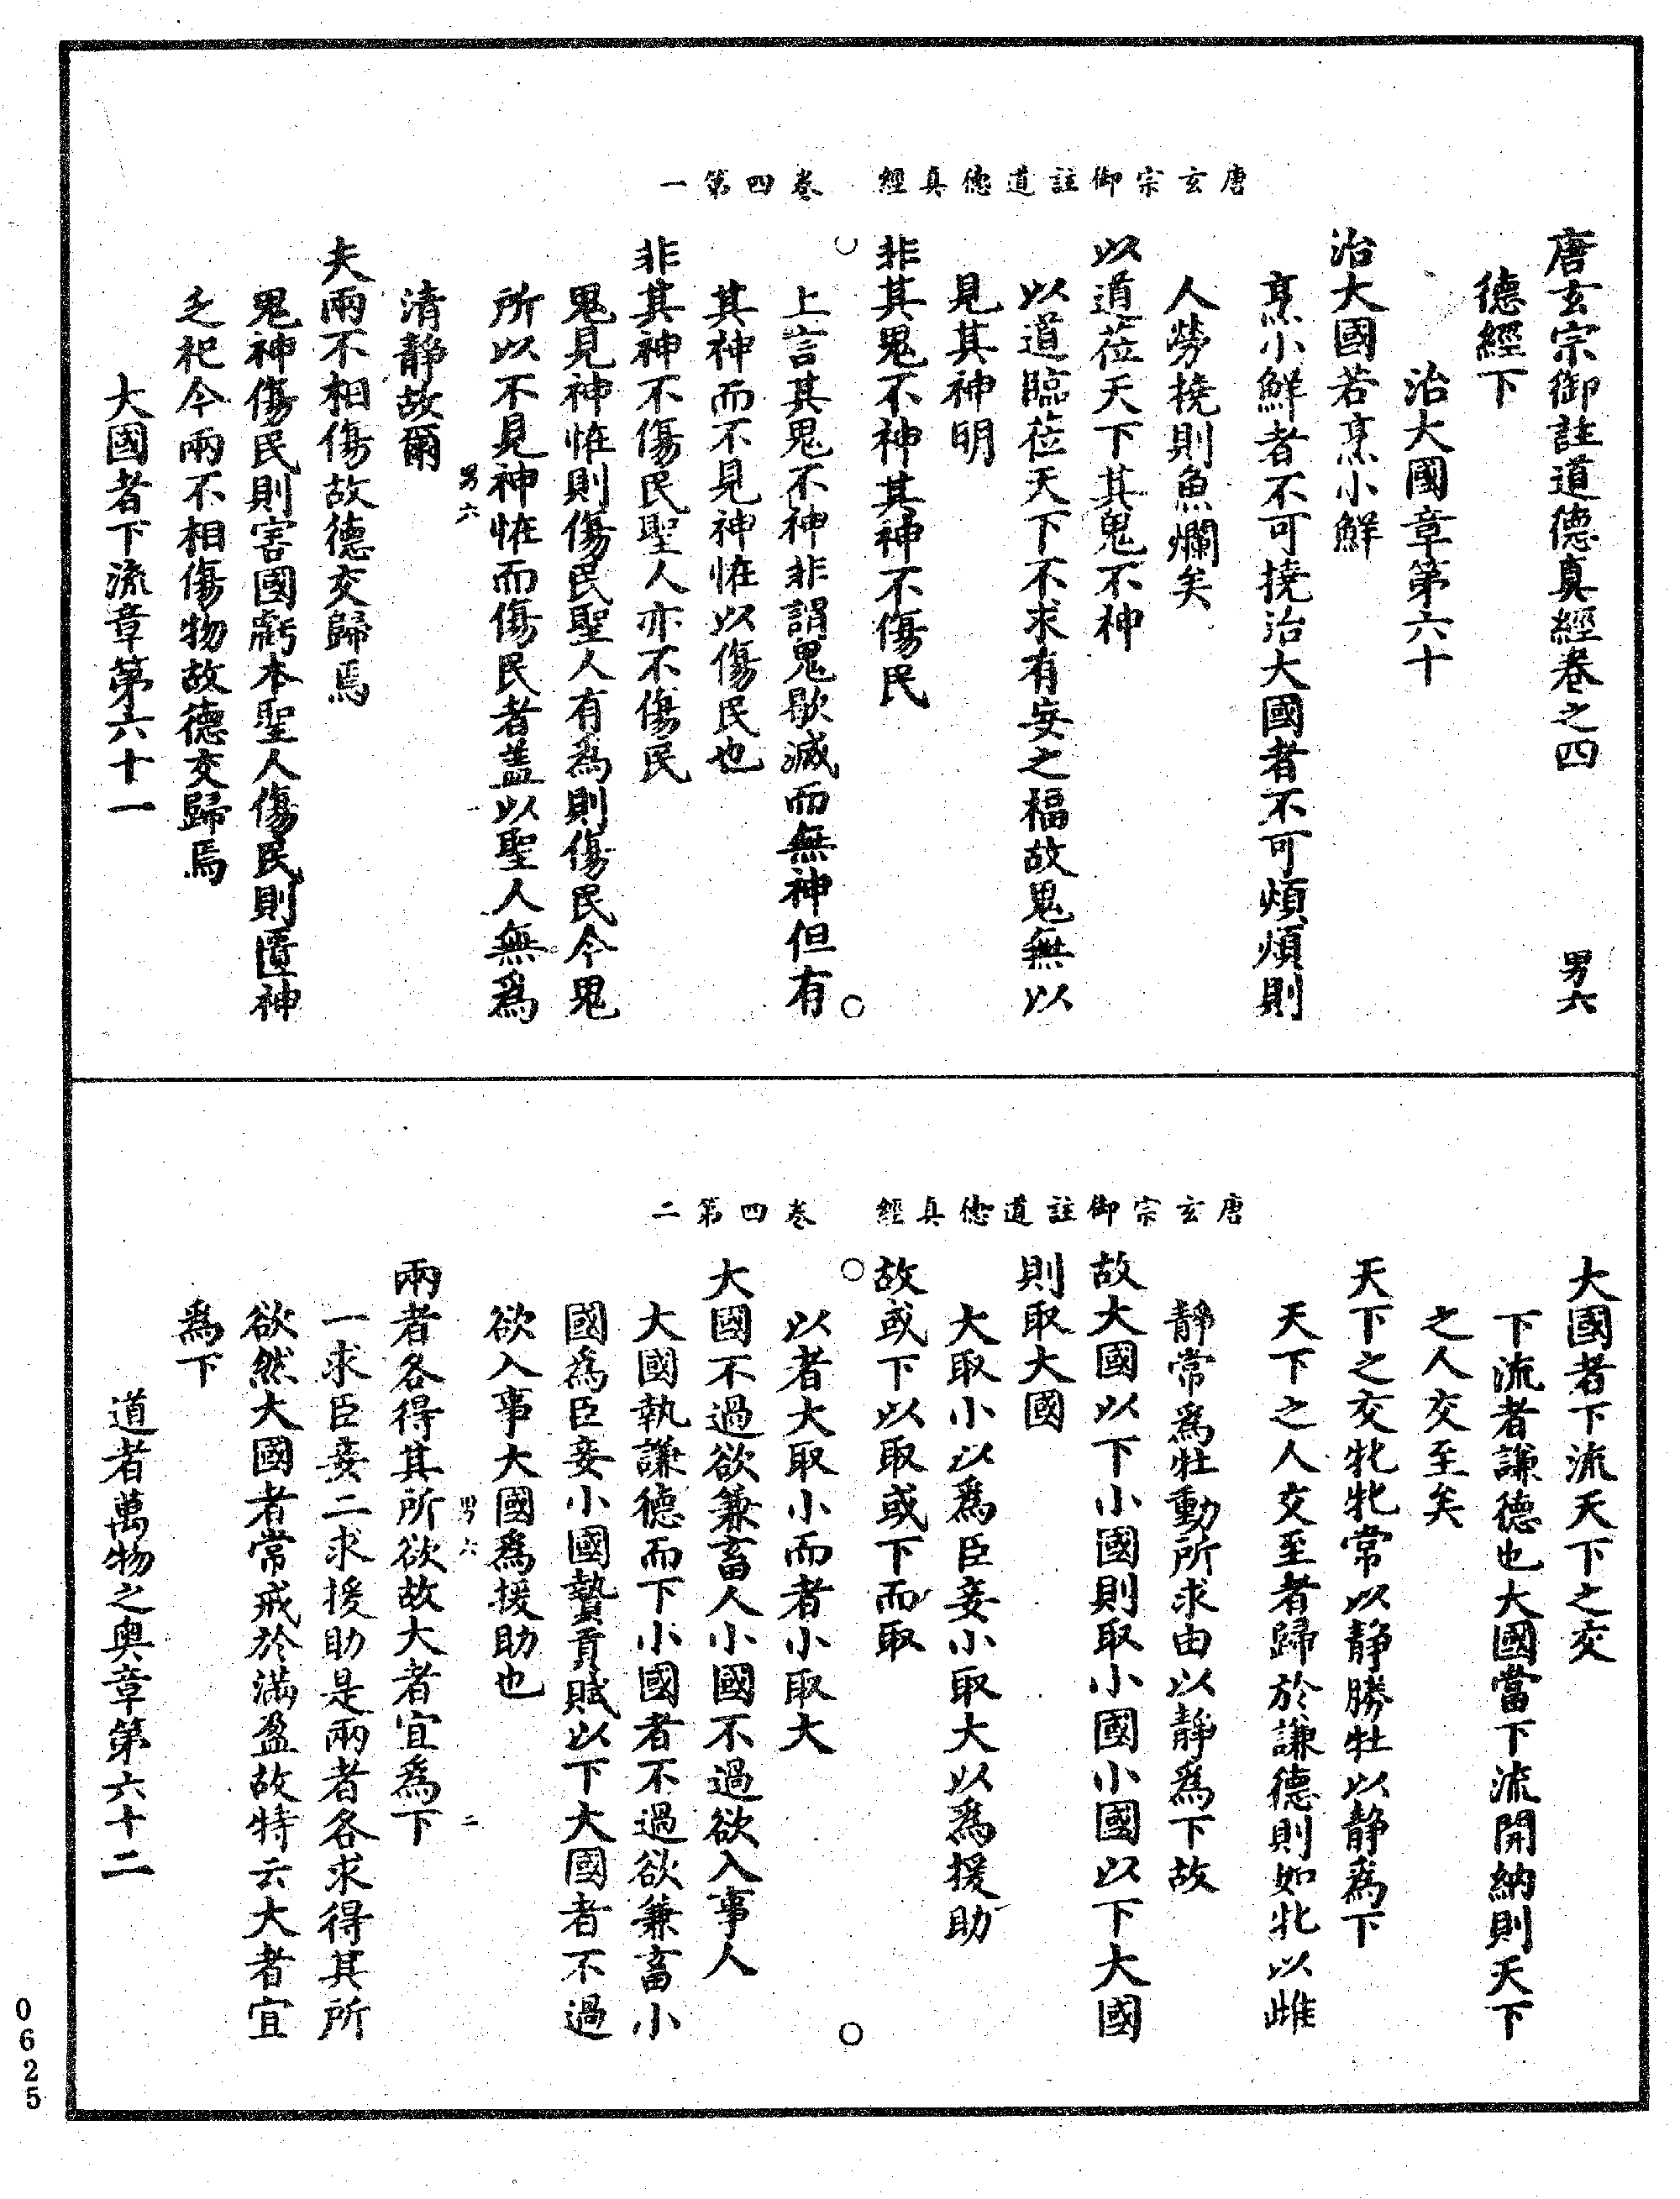 唐玄宗御註道德真經　卷四第一
唐玄宗御註道德真經卷之四　男六
德經下
治大國章第六十
治大國若烹小鮮
烹小鮮者不可撓治大國者不可煩煩則
人勞撓則魚爛矣
以道莅天下其鬼不神
以道臨莅天下不求有妄之福故鬼無以
見其神明
非其鬼不神其神不傷民
上言其鬼不神非謂鬼歇滅而無神但有
其神而不見神恠以傷民也
非其神不傷民聖人亦不傷民
鬼見神恠則傷民聖人有為則傷民今鬼
所以不見神恠而傷民者蓋以聖人無爲
男六
清静故爾
夫兩不相傷故德交歸焉
鬼神傷民則害國虧本聖人傷民則匱神
乏祀今兩不相傷物故德交歸焉
大國者下流章第六十一
唐玄宗御註道德真經　卷四第二
大國者下流天下之交
下流者謙德也大國當下流開納則天下
之人交至矣
天下之交牝牝常以静勝牡以静爲下
天下之人交至者歸於謙德則如牝以雌
静常爲牡動所求由以静爲下故
故大國以下小國則取小國小國以下大國
則取大國
大取小以爲臣妾小取大以爲援助
故或下以取或下而取
以者大取小而者小取大
大國不過欲兼畜人小國不過欲入事人
大國執謙德而下小國者不過欲兼畜小
國爲臣妾小國贄貢賦以下大國者不過
欲入事大國爲援助也
男六　二
兩者各得其所欲故大者宜爲下
一求臣妾二求援助是兩者各求得其所
欲然大國者常戒於滿盈故特云大者宜
爲下
道者萬物之奥章第六十二
0625